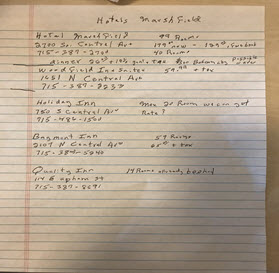 Hotels Marshfield
Hotel Marshfield 99 Rooms
2700 So. Central Ave
715-387-2700 40 Rooms
dinner
Woodfield Inn + Suites 59.99 + tax
1651 N Central Ave
715-387-3233
Holiday Inn Max 20 Room we can get
750 S Central Ave Rate?
715-486-1500
Baymont Inn 59 Rooms
2107 N Central Ave + tax
715-384-5240
Quality Inn 14 Rooms already booked
114 E Upham St
715-387-8691